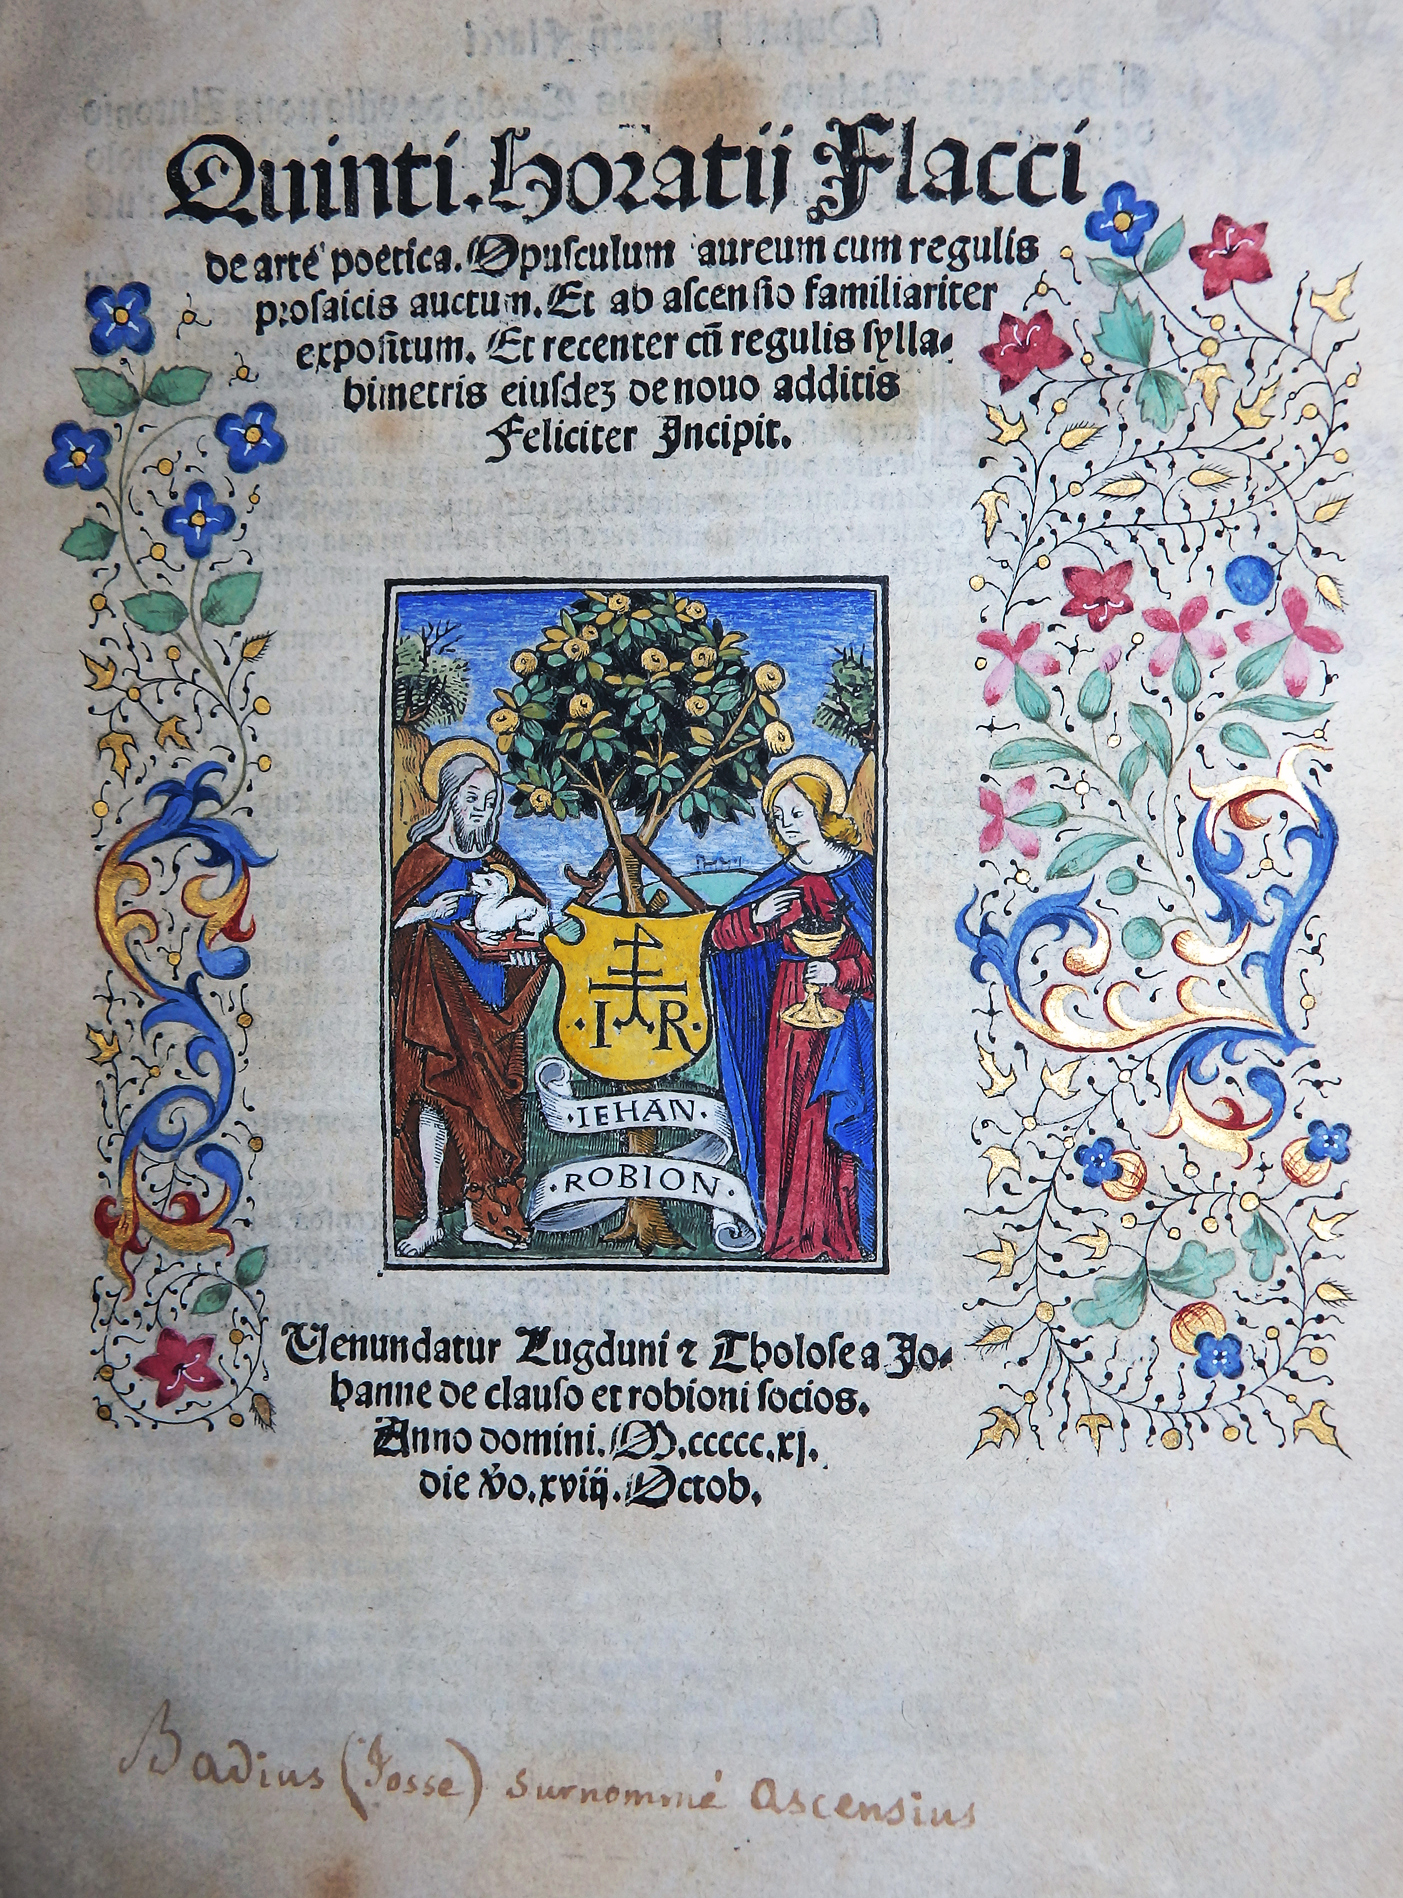 Quinti. Horatij Flacci
de arte poetica. Opusculum aureum cum regulis
prosaicis auctum. Et ab ascensio familiariter
expositum. Et recenter cū regulis sylla-
bimetris eiusdeꝫ de nouo additis
Feliciter Incipit.
·I R·
·IEHAN·
·ROBION·
Uenundatur Lugduni ⁊ Tholose a Jo-
hanne de clauso et robioni socios.
Anno domini. M.ccccc.xj.
die v̄o. xviij. Octob.
Badius (Josse) surnommé Ascensius